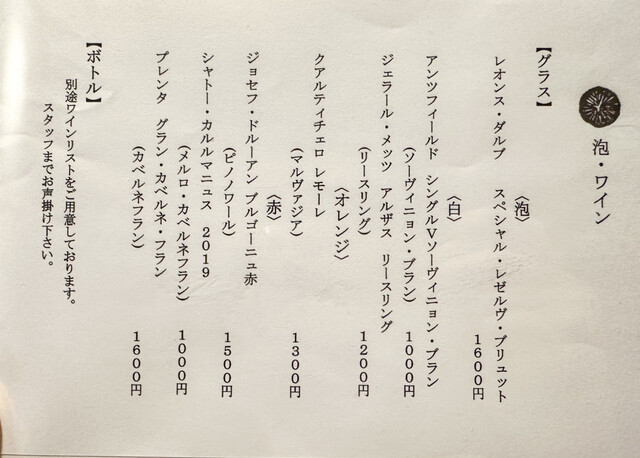 泡・ワイン
【グラス】
〈泡〉
レオンス・ダルブ スペシャル・レゼルヴ・ブリュット
1600円
〈白〉
アンツフィールド シングルVソーヴィニョン・ブラン
(ソーヴィニョン・ブラン)
1000円
ジェラール・メッツ アルザス リースリング
(リースリング)
1200円
〈オレンジ〉
クアルティチェロ レモーレ
(マルヴァジア)
1300円
〈赤〉
ジョセフ・ドルーアン ブルゴーニュ赤
(ピノノワール)
1500円
シャトー・カルルマニュス 2019
(メルロ・カベルネフラン)
1000円
プレンタ グラン・カベルネ・フラン
(カベルネフラン)
1600円
【ボトル】
別途ワインリストをご用意しております。
スタッフまでお声掛け下さい。